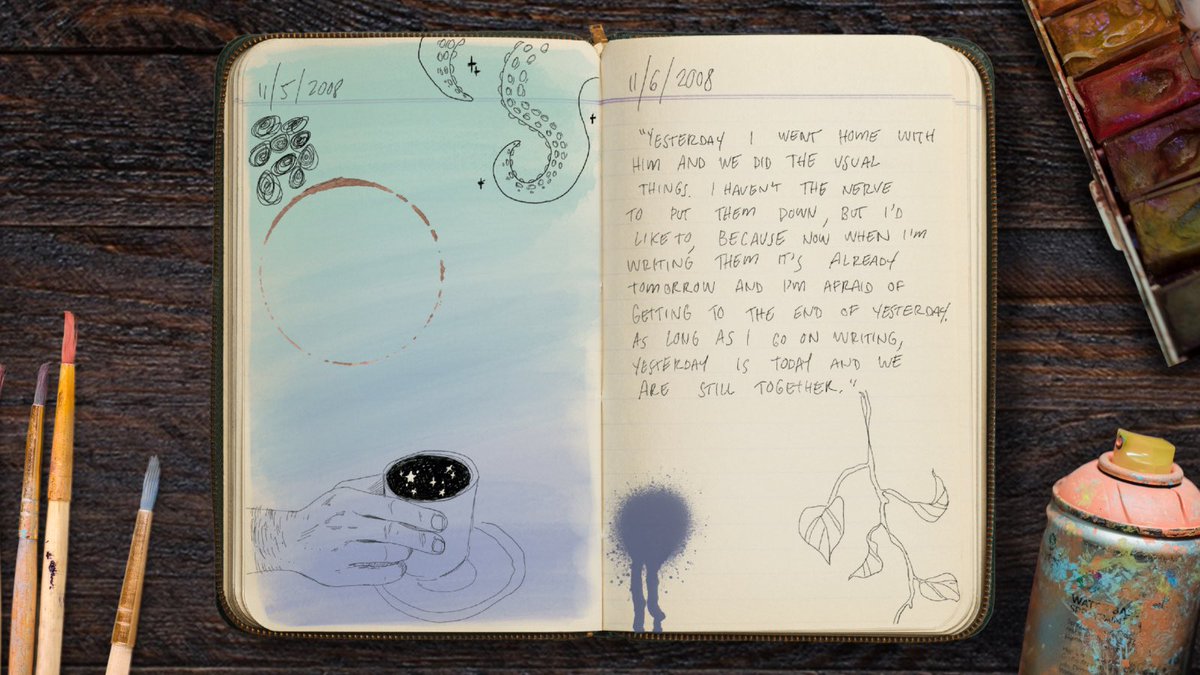 11/5/2008
11/6/2008
"YESTERDAY I WENT HOME WITH
HIM AND WE DID THE USUAL
THINGS. I HAVEN'T THE NERVE
TO PUT THEM DOWN, BUT I'D
LIKE TO, BECAUSE NOW WHEN I'M
WRITING THEM IT'S ALREADY
TOMORROW AND I'M AFRAID OF
GETTING TO THE END OF YESTERDAY.
AS LONG AS I GO ON WRITING,
YESTERDAY IS TODAY AND WE
ARE STILL TOGETHER."